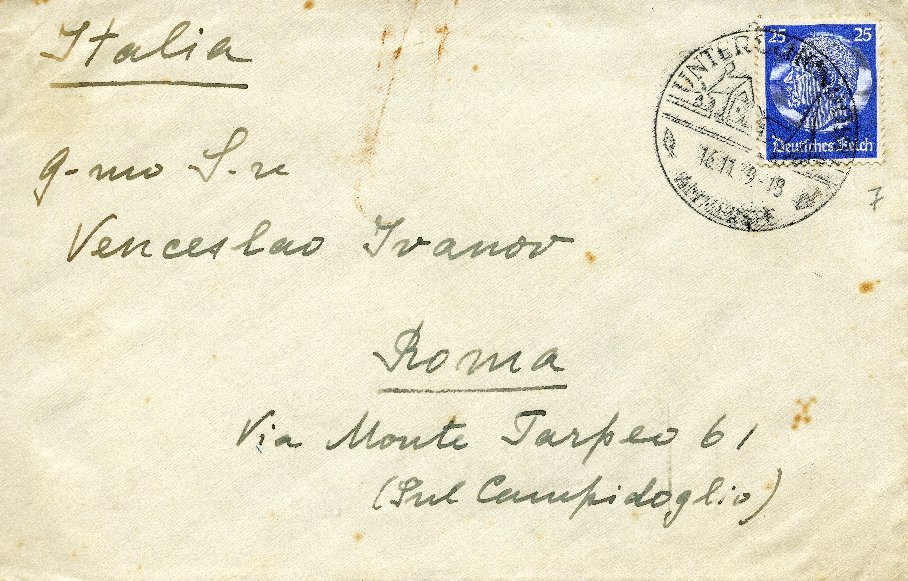 Italia
25 25
Deutsches Reich
16.11.39.-18
7
g-mo S.re
Venceslao Ivanov
Roma
Via Monte Tarpeo 61
(Sul Campidoglio)